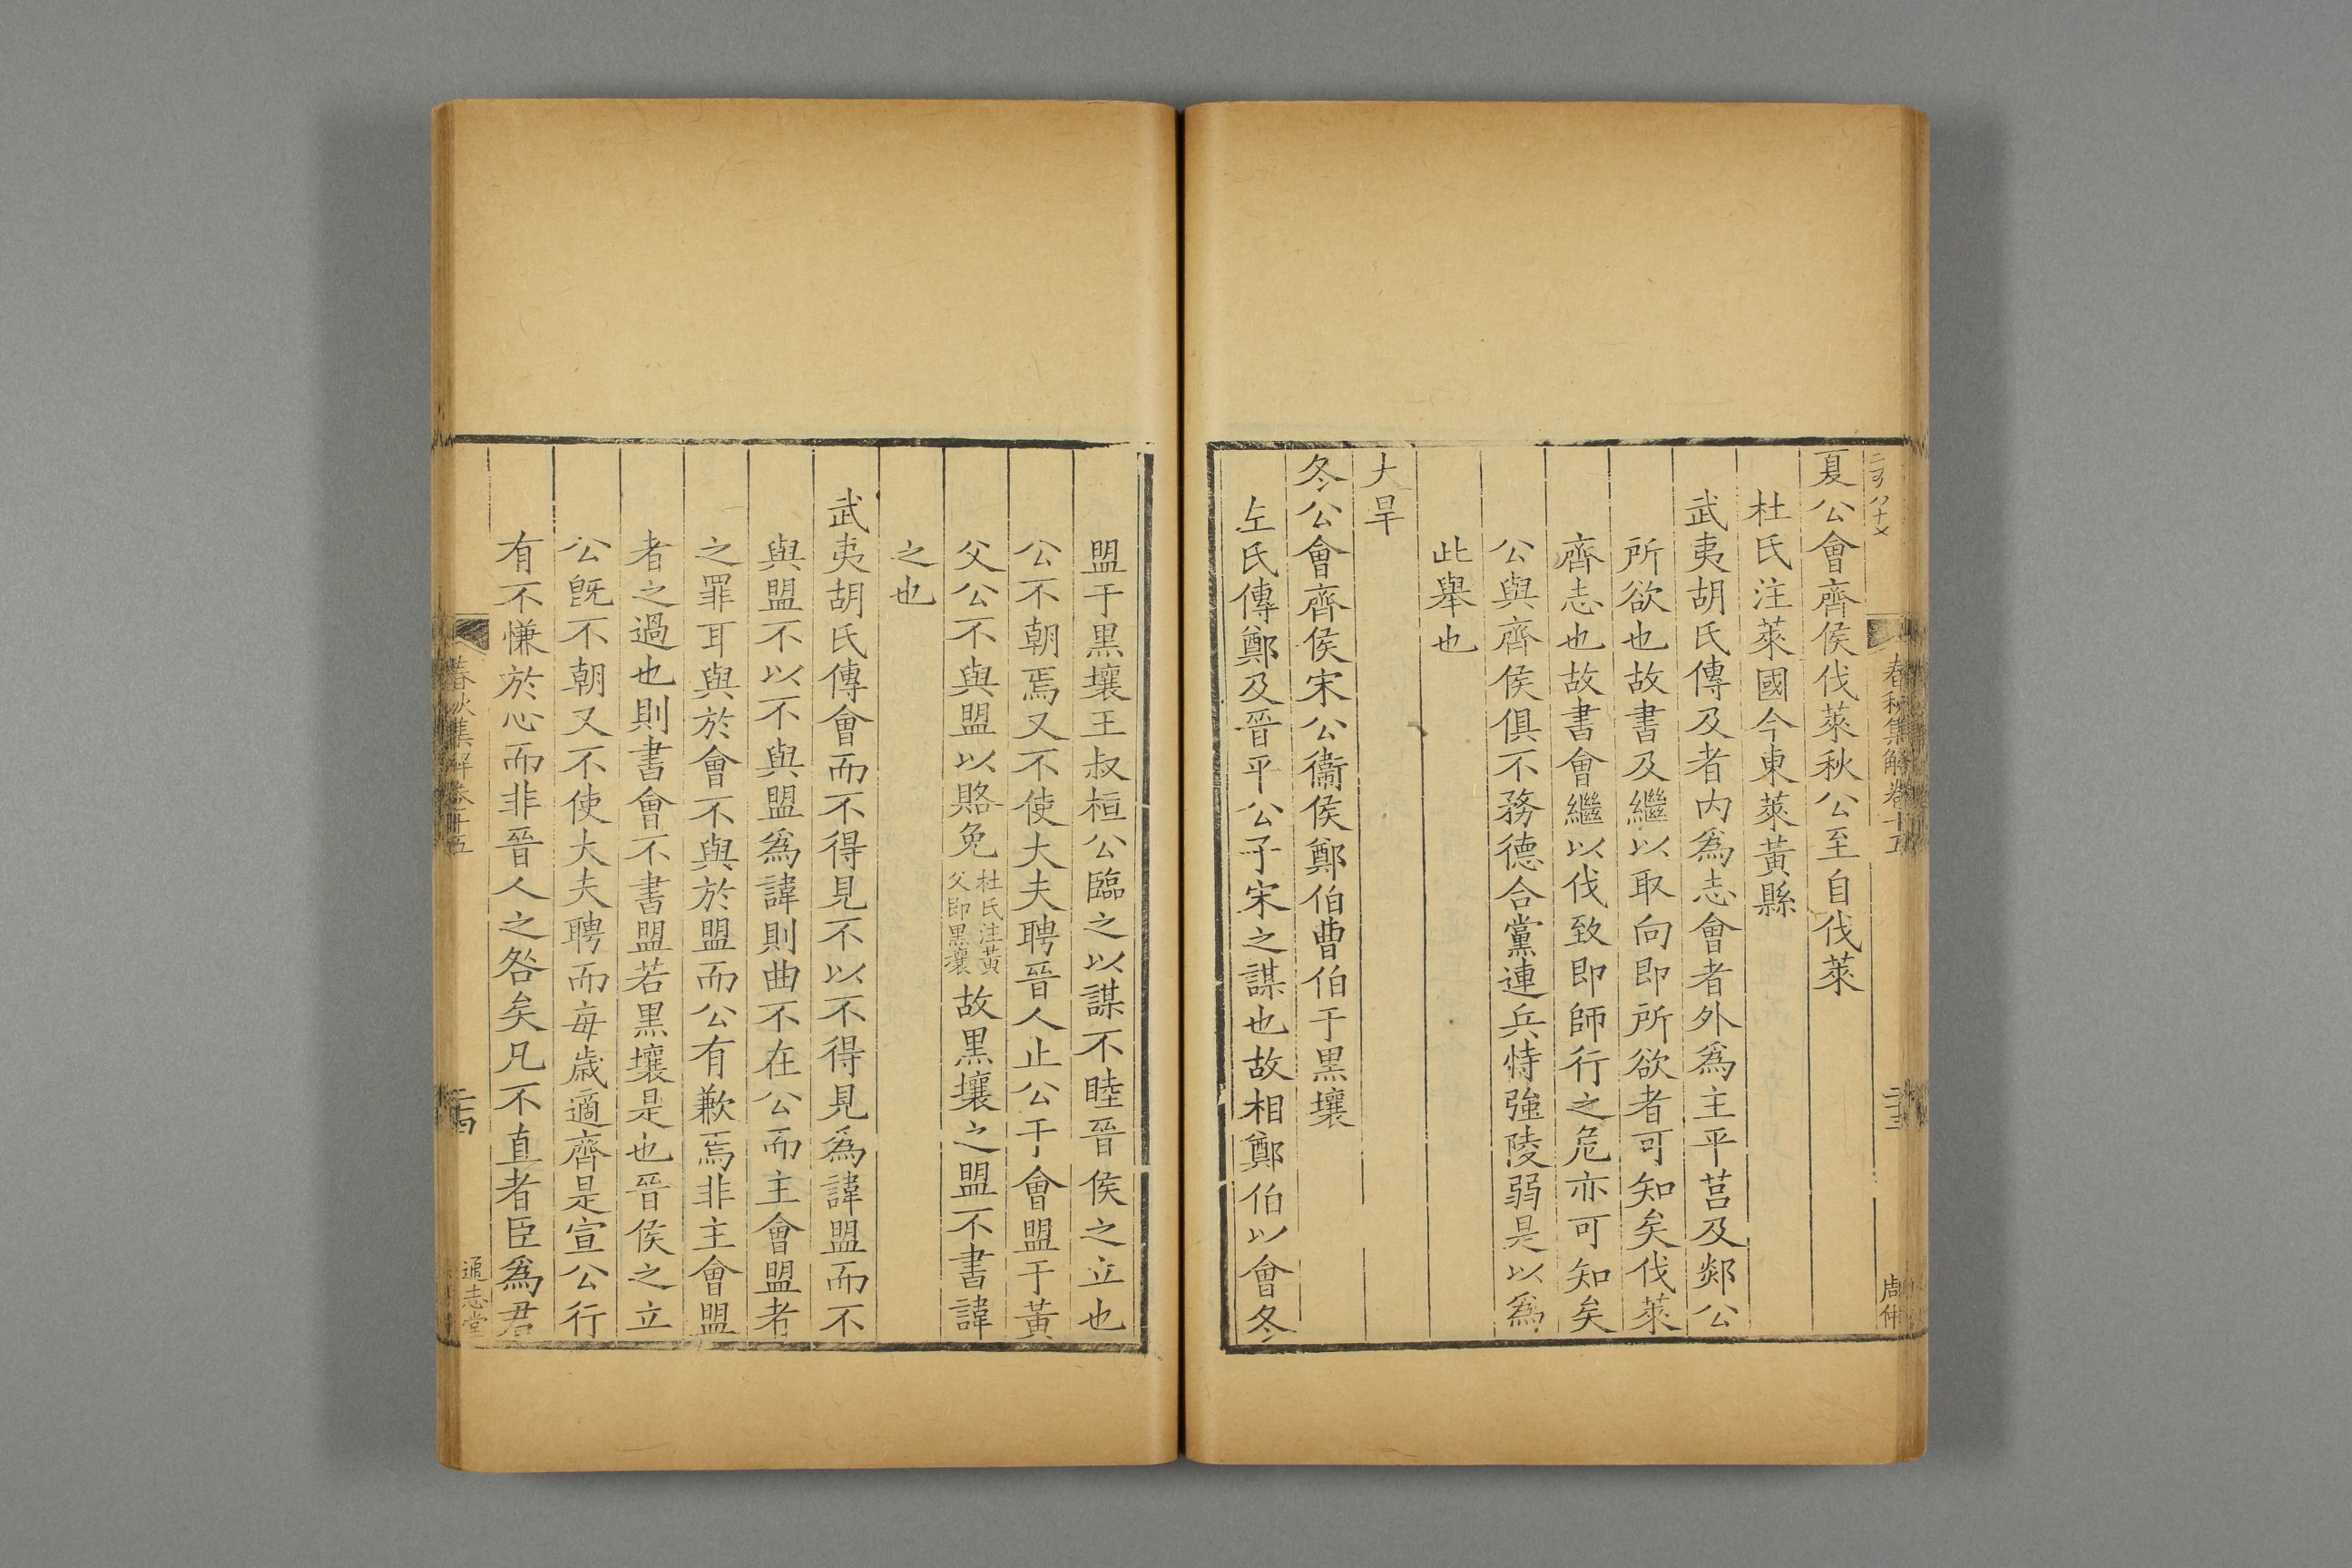 春秋集解卷十五
二十三
夏公會齊侯伐萊秋公至自伐萊
杜氏注萊國今東萊黃縣
武夷胡氏傳及者内爲志會者外爲主平莒及郯公
所欲也故書及繼以取向即所欲者可知矣伐萊
齊志也故書會繼以伐致即師行之危亦可知矣
公與齊侯俱不務德合黨連兵恃強陵弱是以爲
此舉也
大旱
冬公會齊侯宋公衞侯鄭伯曹伯于黒壤
左氏傳鄭及晉平公子宋之謀也故相鄭伯以會冬
盟于黒壤王叔桓公臨之以謀不睦晉侯之立也
公不朝焉又不使大夫聘晉人止公于會盟于黃
父公不與盟以賂免杜氏注黃父即黒壤故黒壤之盟不書諱
之也
武夷胡氏傳會而不得見不以不得見爲諱盟而不
與盟不以不與盟爲諱則曲不在公而主會盟者
之罪耳與於會不與於盟而公有歉焉非主會盟
者之過也則書會不書盟若黒壤是也晉侯之立
公旣不朝又不使大夫聘而每歲適齊是宣公行
有不慊於心而非晉人之咎矣凡不直者臣爲君
春秋集解卷十五
二十四
通志堂